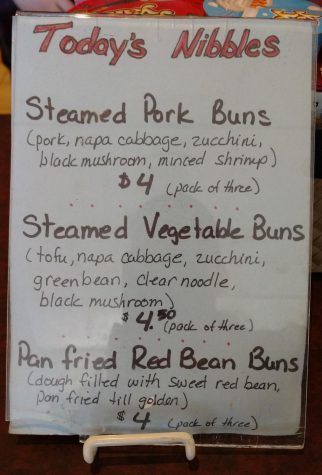 Today's Nibbles
Steamed Pork Buns
(pork, napa cabbage, zucchini,
black mushroom, minced shrimp)
$4 (pack of three)
Steamed Vegetable Buns
(tofu, napa cabbage, zucchini,
green bean, clear noodle,
black mushroom)
$4.50 (pack of three)
Pan fried Red Bean Buns
(dough filled with sweet red bean,
pan fried till golden)
$4 (pack of three)